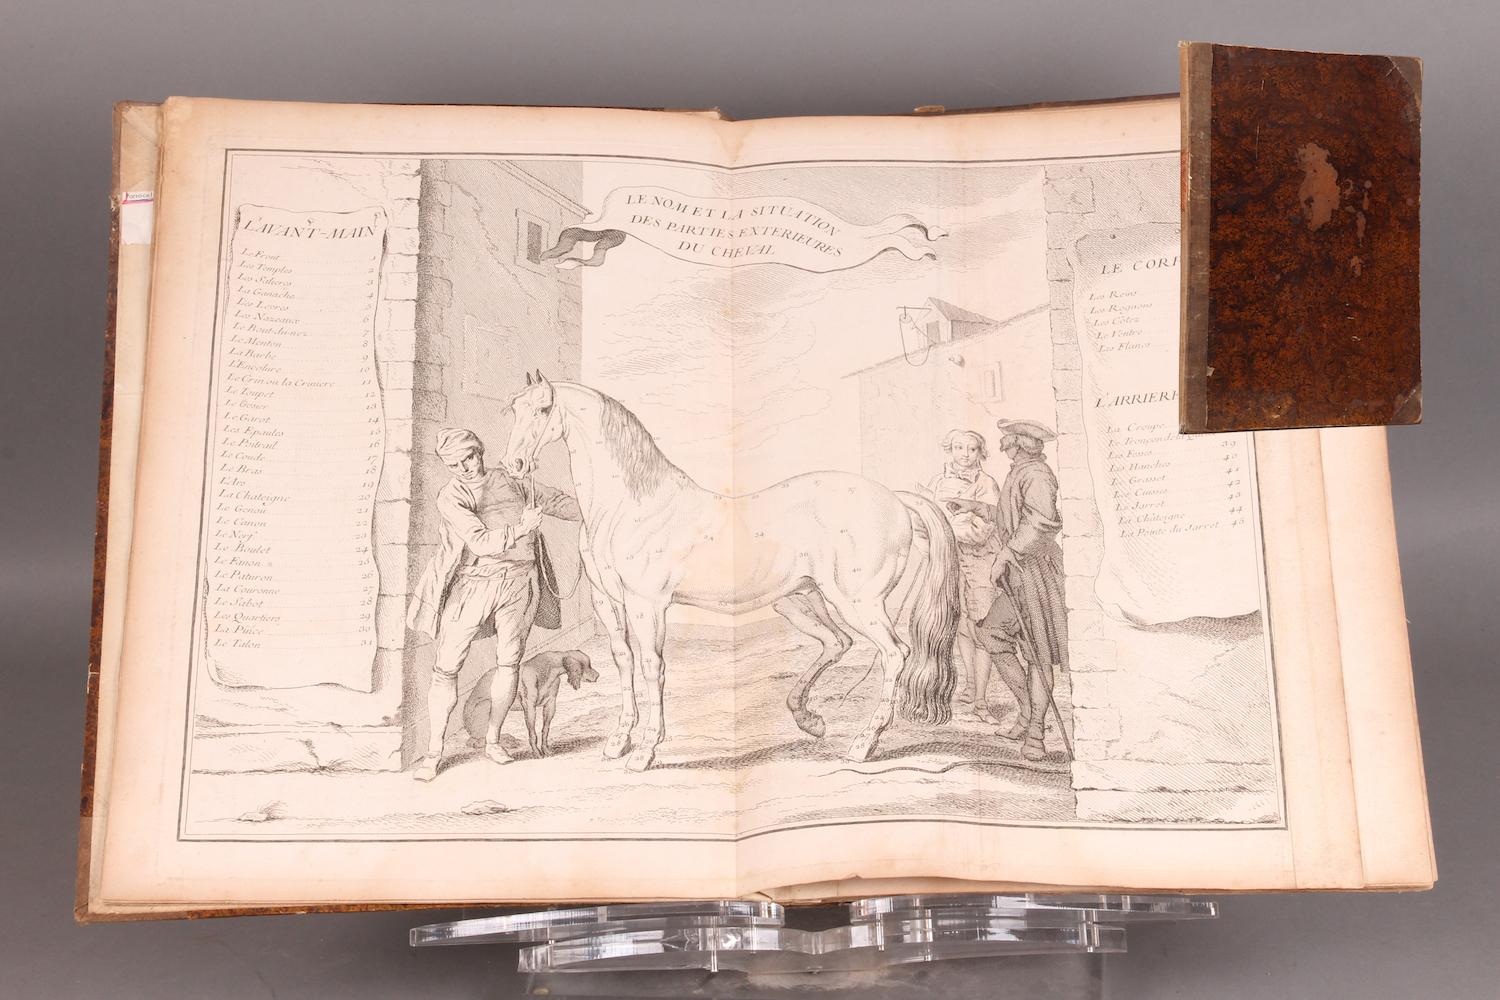 LE NOM ET LA SITUATION
DES PARTIES EXTERIEURES
DU CHEVAL
L'AVANT-MAIN
Le Front 1
Les Temples 2
Les Salieres 3
La Ganache 4
Les Levres 5
Les Nazeaux 6
Le Bout-du-nez 7
Le Menton 8
La Barbe 9
L'Encolure 10
Le Crin ou la Criniere 11
Le Toupet 12
Le Gosier 13
Le Garot 14
Les Epaules 15
Le Poitrail 16
Le Coude 17
Le Bras 18
L'Ars 19
La Chateigne 20
Le Genou 21
Le Canon 22
Le Nerf 23
Le Boulet 24
Le Fanon 25
Le Paturon 26
La Couronne 27
Le Sabot 28
Les Quartiers 29
La Pince 30
Le Talon 31
LE CORP
Les Reins
Les Rognons
Les Côtez
Le Ventre
Les Flancs
L'ARRIERE
La Croupe
Le Tronçon de la 39
Les Fesses 40
Les Hanches 41
Le Grasset 42
Les Cuisses 43
Le Jarret 44
La Châteigne
La Pointe du Jarret 46